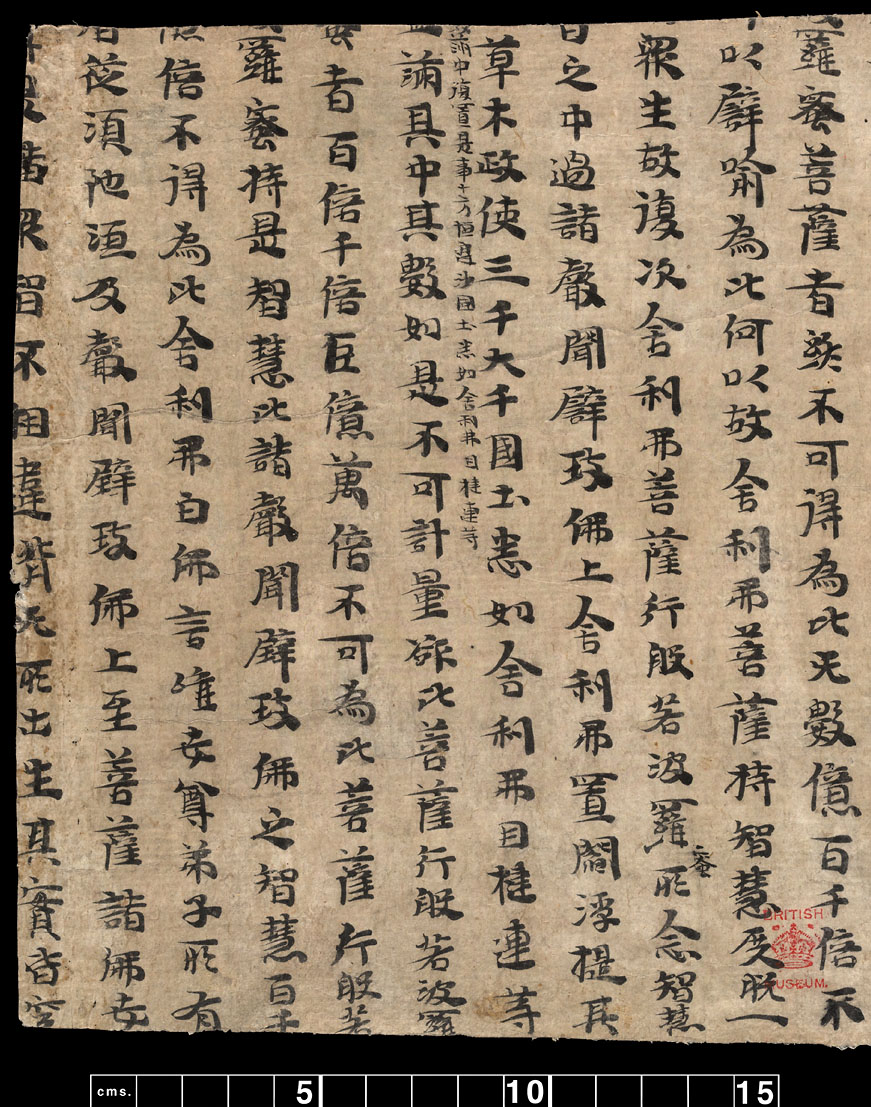 羅蜜菩薩者終不可得為比无數億百千倍不
以譬喻為比何以故舍利弗菩薩持智慧度脫一
眾生故復次舍利弗菩薩行般若波羅蜜所念智慧
日之中過諸聲聞辟支佛上舍利弗置閻浮提其
草木政使三千大千國土悉如舍利弗目揵連等
滿中復置是事十方恒邊沙國土悉如舍利弗目揵連等
滿其中其數如是不可計量欲比菩薩行般若波羅
蜜者百倍千倍巨億萬倍不可為比菩薩行般若
羅蜜持是智慧比諸聲聞辟支佛之智慧百千
億倍不得為比舍利弗白佛言唯世尊弟子所有
智從須陀洹及聲聞辟支佛上至菩薩諸佛世
是諸眾智不相違背无所出生其實皆空
BRITISH
MUSEUM.
cms. 5 10 15